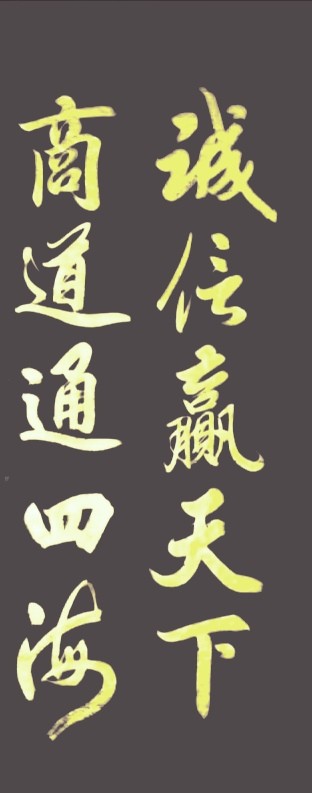 诚信赢天下
商道通四海